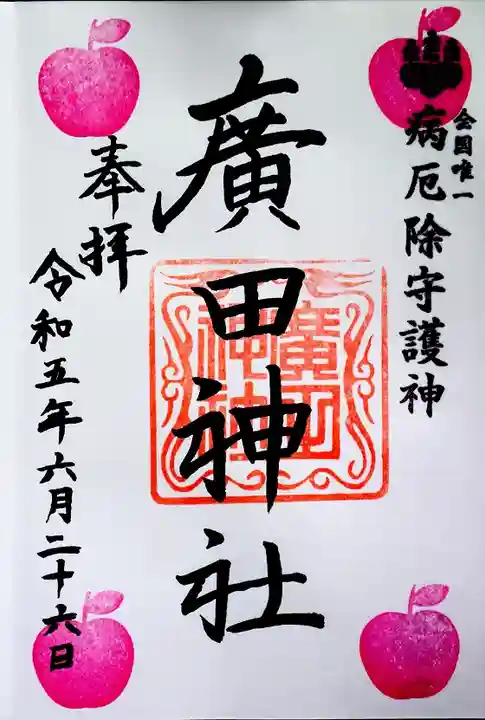 全国唯一
病厄除守護神
廣田神社
廣田
神社
奉拝
令和五年六月二十六日